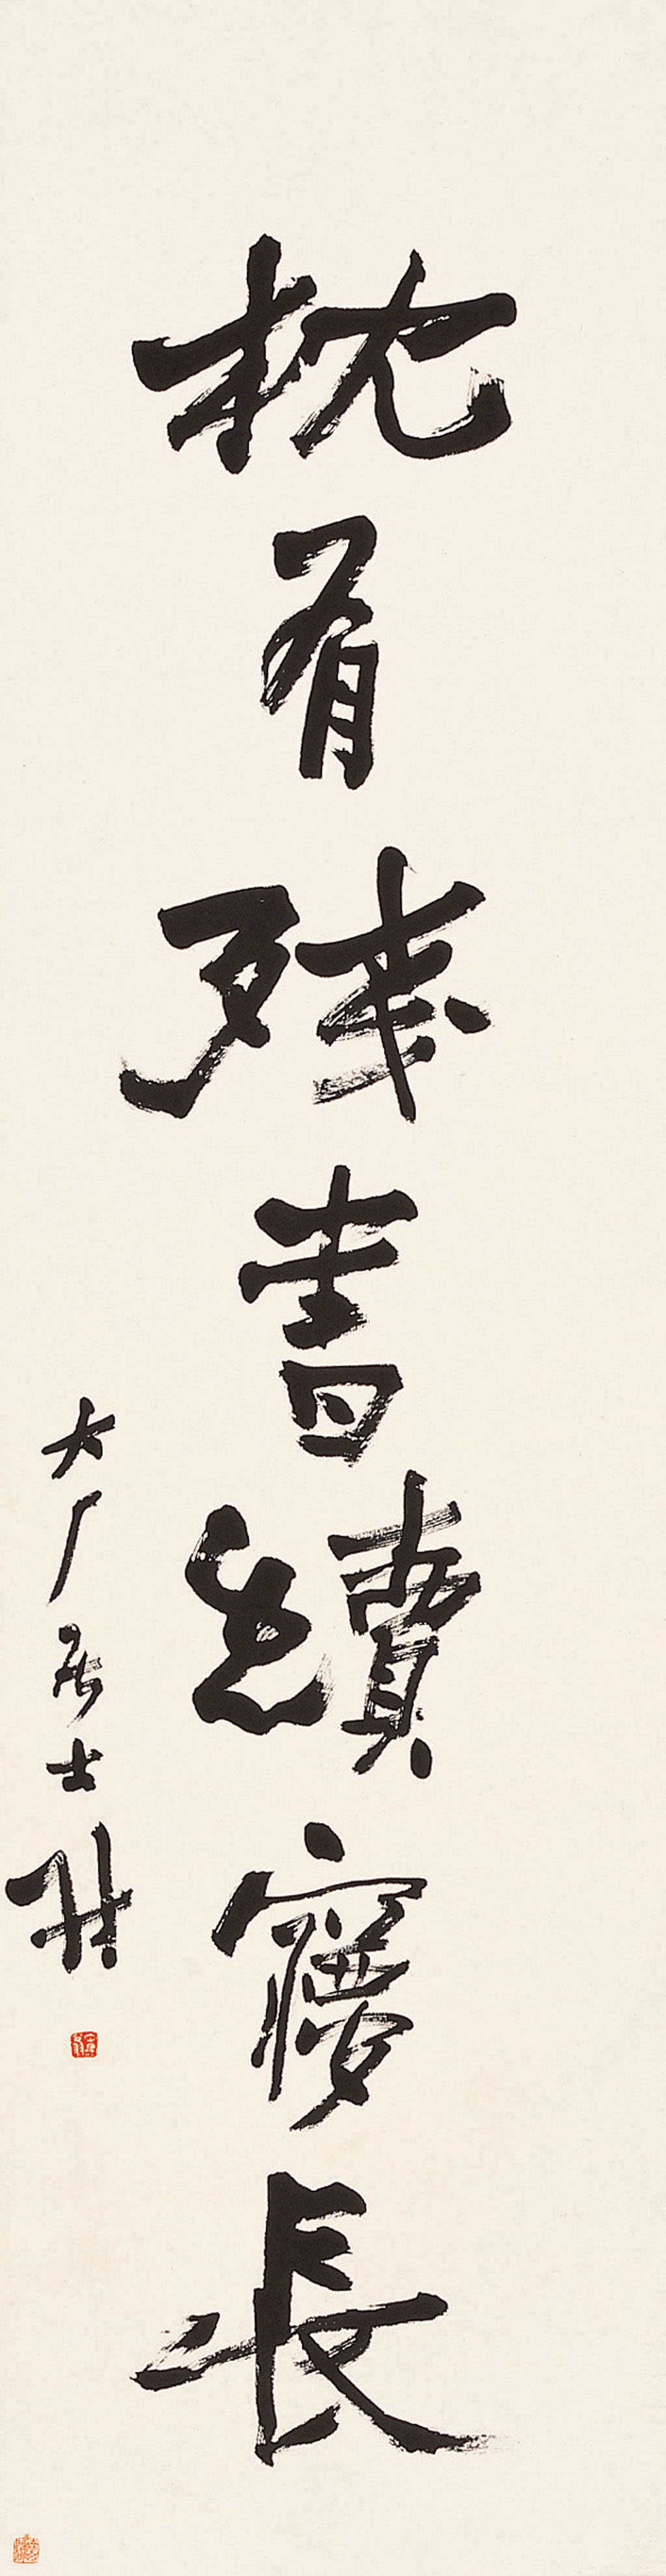 枕有殘書續寱長
大厂居士